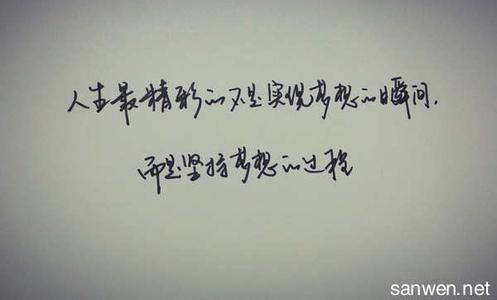 人生最精彩的不是实现梦想的瞬间,
而是坚持梦想的过程
sanwen.net